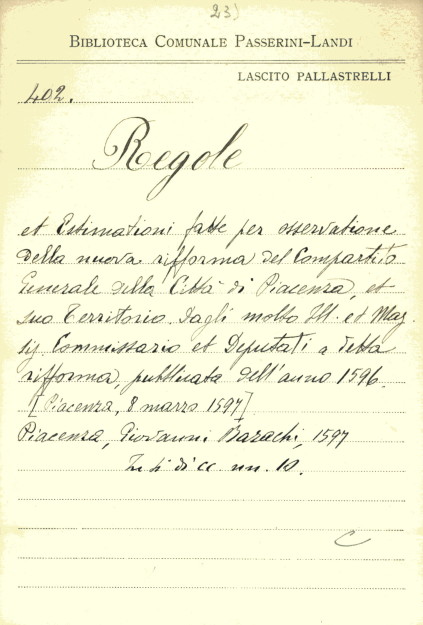 23)
BIBLIOTECA COMUNALE PASSERINI-LANDI
LASCITO PALLASTRELLI
402.
Regole
et Estimationi fatte per osservatione
della nuova rifforma del Compartito
Generale della Città di Piacenza, et
suo Territorio dagli molto Ill. ed Mag.
Commissario et Deputati a detta
rifforma, pubblicata dell'anno 1596.
[Piacenza, 8 marzo 1597]
Piacenza, Giovanni Barachi, 1597
di cc nn. 10.
C